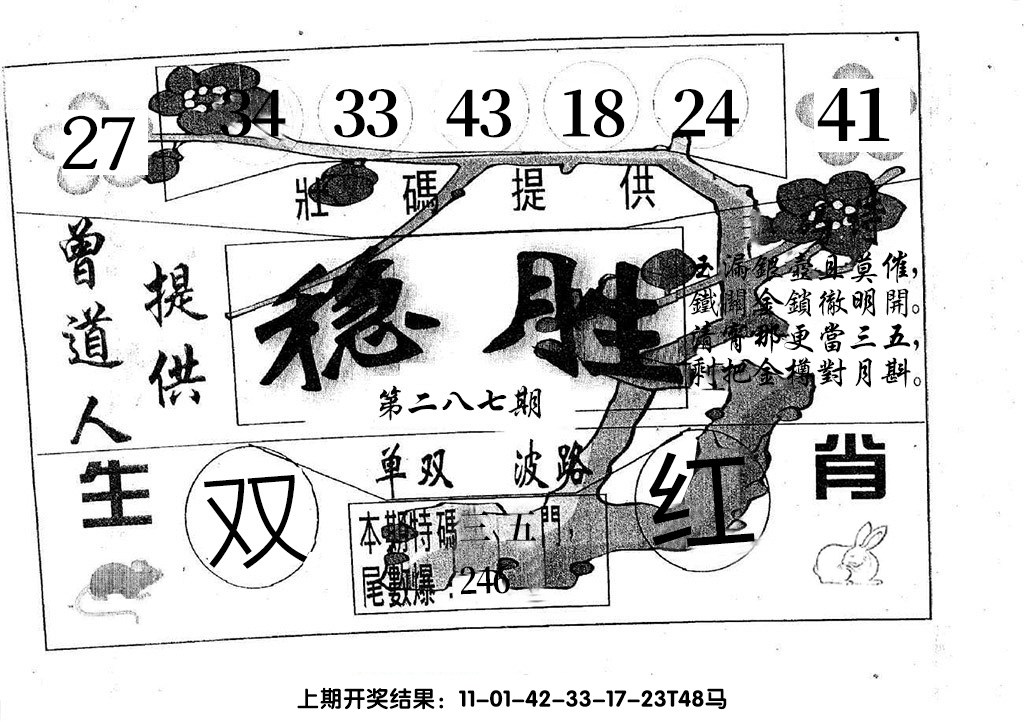 27 34 33 43 18 24 41
壯碼提供
曾道人
提供
稳胜
特
玉漏銀壺且莫催，
鐵關金鎖徹明開。
清宵那更當三五，
剩把金樽對月斟。
第二八七期
单双 波路
生肖
双
红
本期特碼三、五門，
尾數爆：246
上期开奖结果：11-01-42-33-17-23T48马